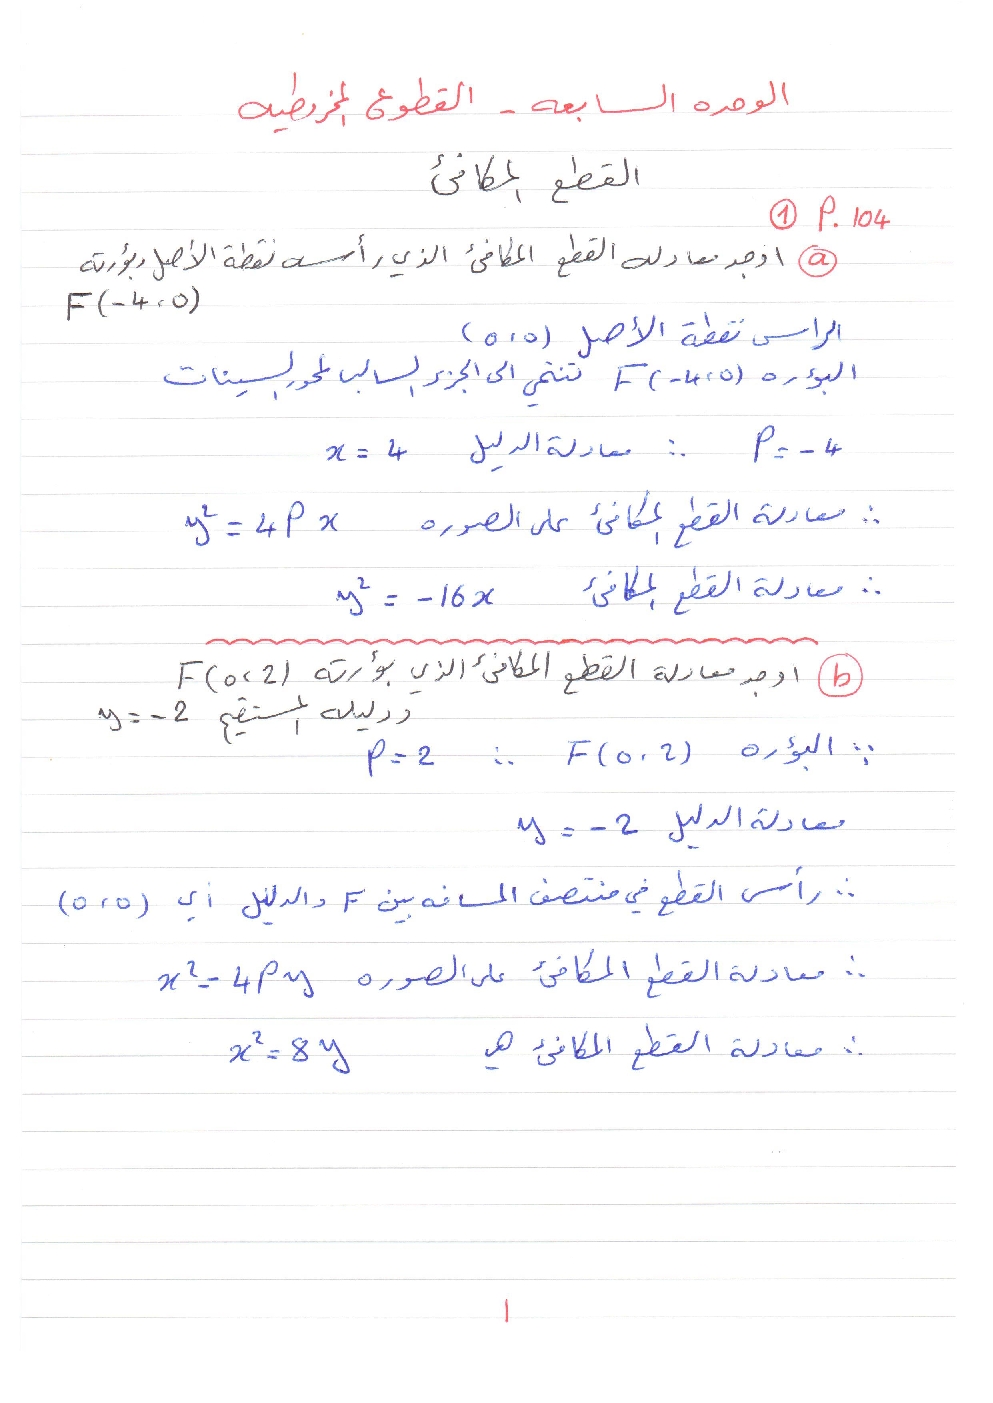 الوحده السابعه - القطوع المخروطيه
القطع المكافئ
① P. 104
ⓐ اوجد معادله القطع المكافئ الذي رأسه نقطة الأصل وبؤرته
F(-4,0)
الراس نقطة الأصل (0,0)
البؤره F(-4,0) تنتمي الى الجزء السالب لمحور السينات
P = -4 ∴ معادلة الدليل x = 4
∴ معادلة القطع المكافئ على الصوره y² = 4Px
∴ معادلة القطع المكافئ y² = -16x
ⓑ اوجد معادلة القطع المكافئ الذي بؤرته F(0,2)
ودليله المستقيم y = -2
∵ البؤره F(0,2) ∴ P = 2
معادلة الدليل y = -2
∴ رأس القطع في منتصف المسافه بين F والدليل أي (0,0)
∴ معادلة القطع المكافئ على الصوره x² = 4Py
∴ معادلة القطع المكافئ هي x² = 8y
1